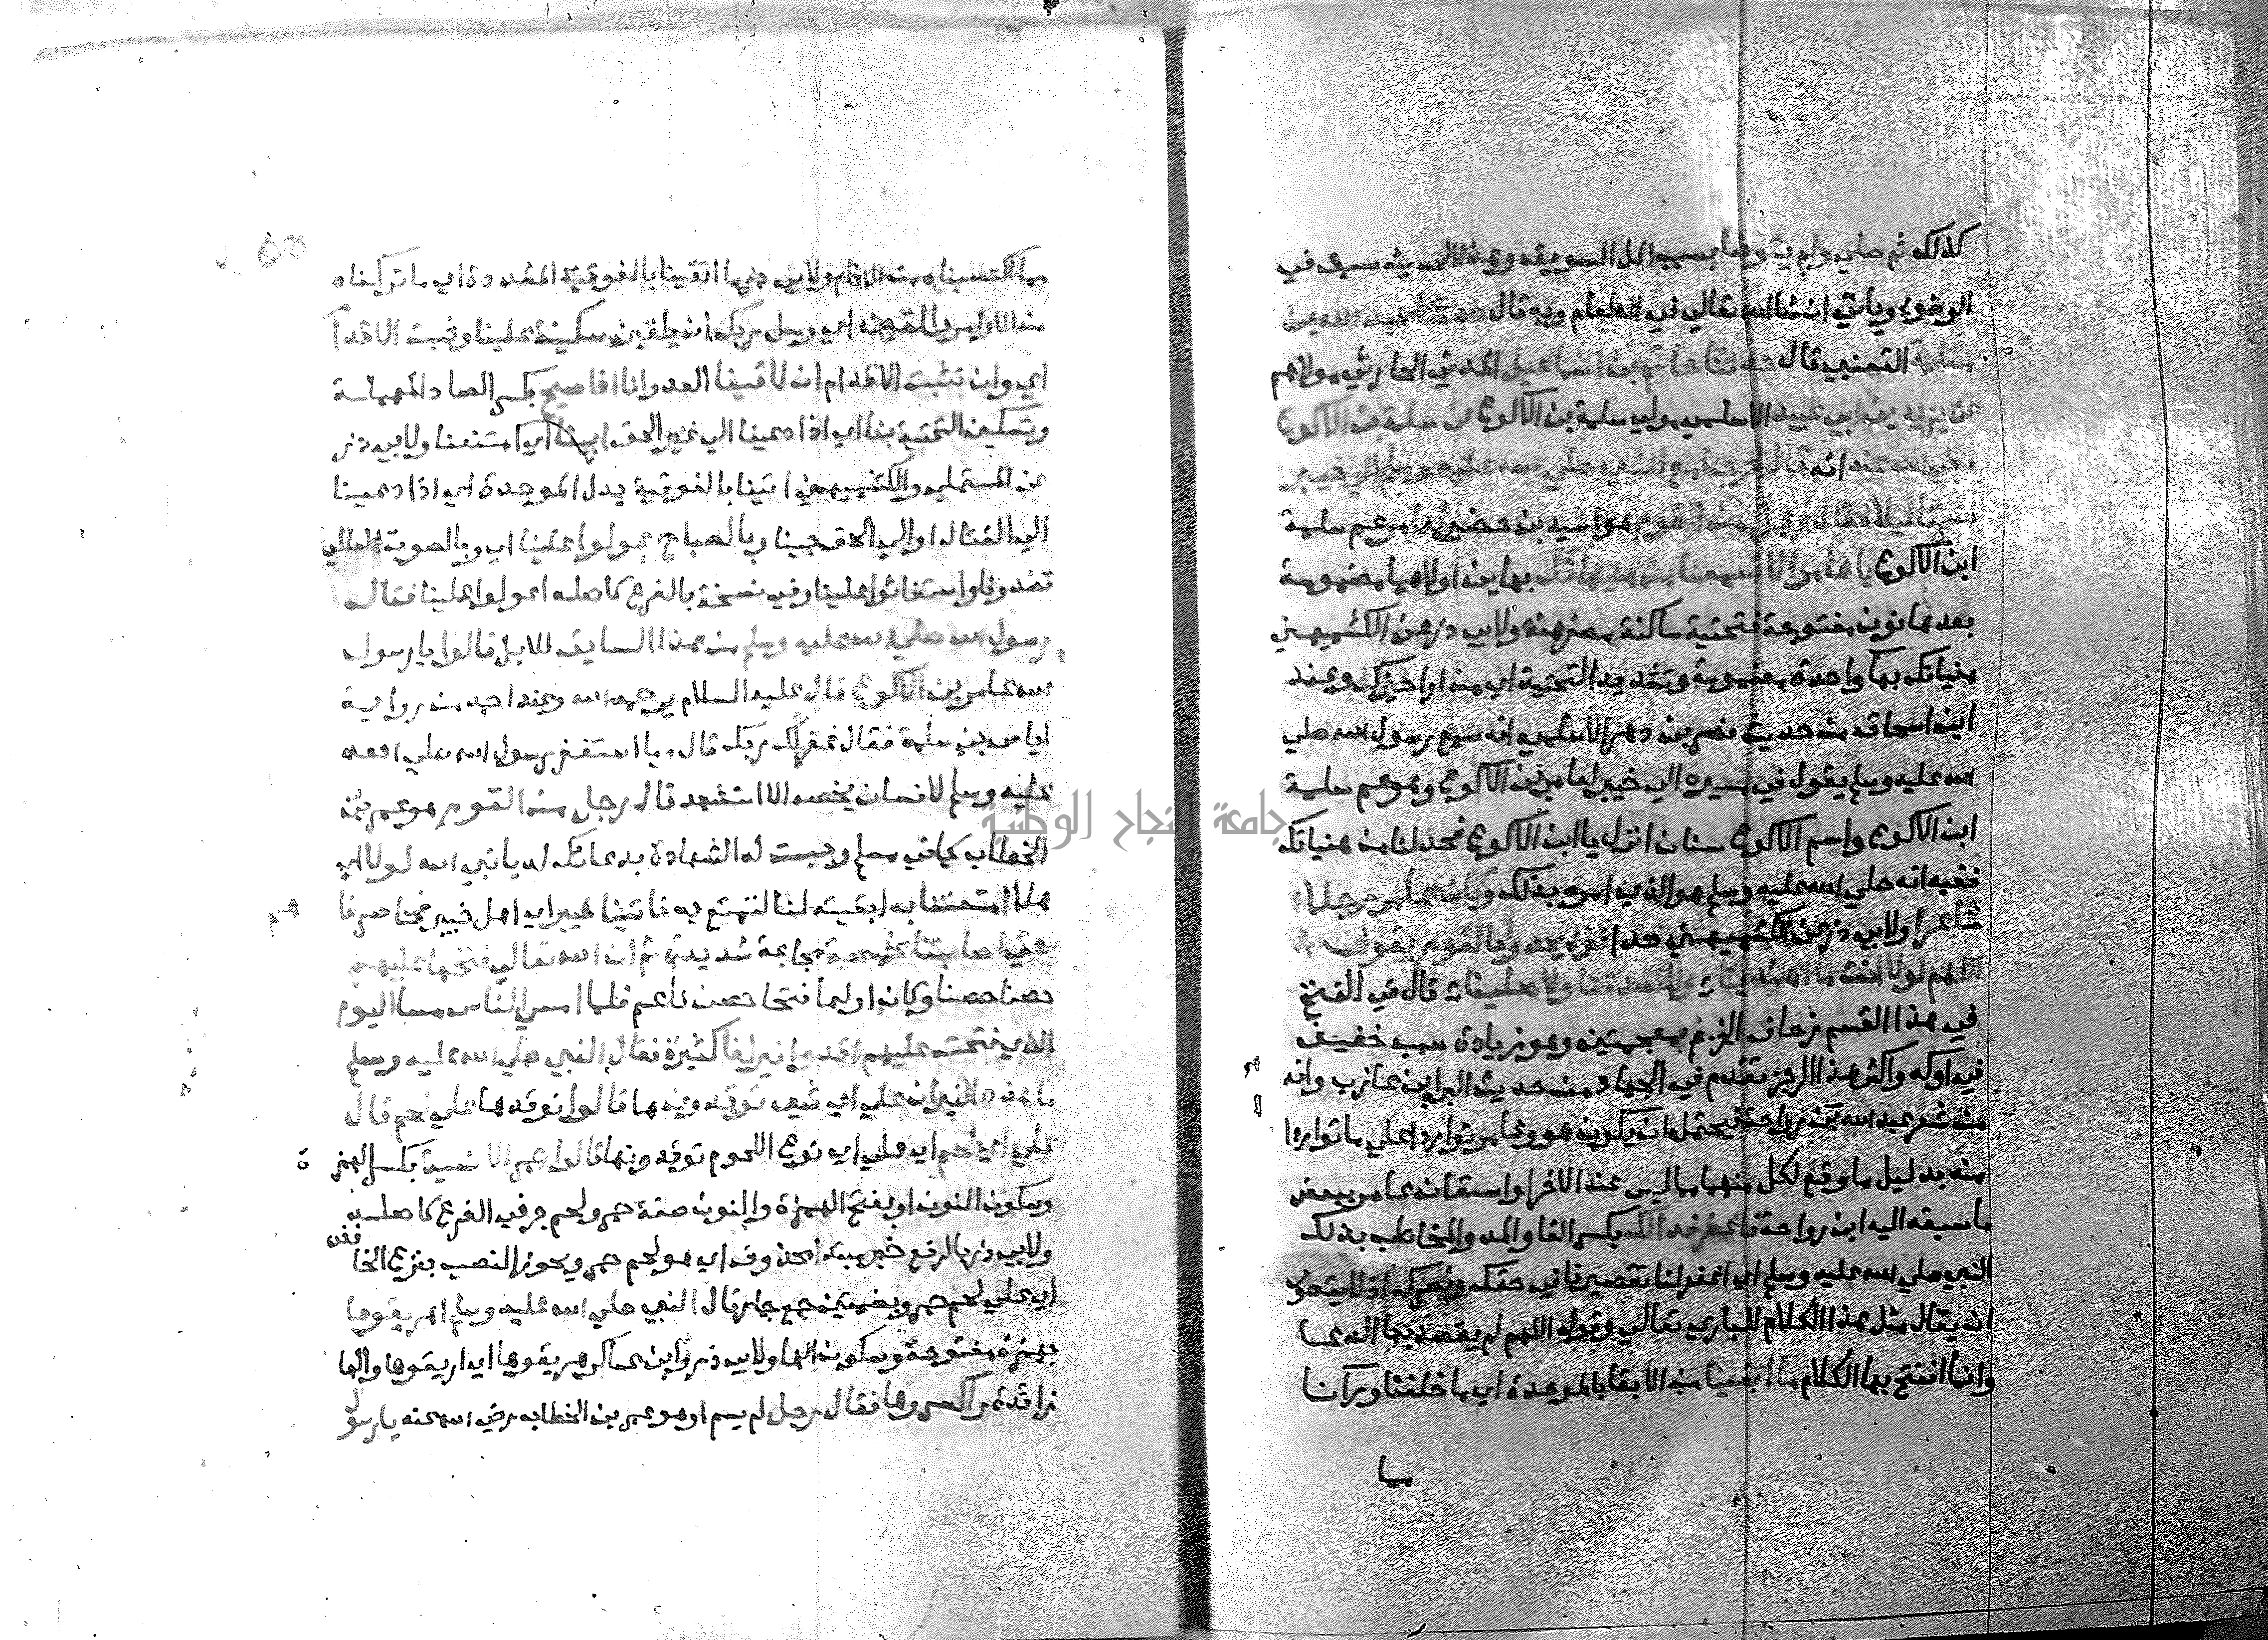 كذلك ثم صلي ولم يتوضا بسبب اكل السويق وهذا الحديث سبق في
الوضوء وياتي ان شا الله تعالي في الطعام وبه قال حدثنا عبد الله بن
مسلمة القعنبي قال حدثنا حاتم بن اسماعيل المدني الحارثي مولاهم
عن يزيد بن ابي عبيد الاسلمي مولي سلمة بن الاكوع عن سلمة بن الاكوع
رضي الله عنه انه قال خرجنا مع النبي صلي الله عليه وسلم الي خيبر
فسرنا ليلا فقال رجل من القوم هو اسيد بن حضير لعامر عم سلمة
ابن الاكوع يا عامر الا تسمعنا من هنيهاتك بهاين اولاهما مضمومة
بعدها نون مفتوحة فتحتية ساكنة مصغر هنة ولابي ذر عن الكشميهني
هنياتك بها واحدة مضمومة وتشديد التحتية اي من اراجيزك وعند
ابن اسحاق من حديث نصر بن دهر الاسلمي انه سمع رسول الله صلي
الله عليه وسلم يقول في مسيره الي خيبر لعامر بن الاكوع وهو عم سلمة
ابن الاكوع واسم الاكوع سنان انزل يا ابن الاكوع فحد لنا من هنياتك
ففيه انه صلي الله عليه وسلم هو الذي امره بذلك وكان عامر رجلا
شاعرا ولابي ذر عن الكشميهني حدا فنزل يحدوا بالقوم يقول
اللهم لولا انت ما اهتدينا ولا تصدقنا ولا صلينا قال في الفتح
في هذا القسم زحاف الخزم بمعجمتين وهو زيادة سبب خفيف
في اوله واكثر هذا الرجز تقدم في الجهاد من حديث البرا بن عازب وانه
من شعر عبد الله بن رواحة فيحتمل ان يكون هو وعامر تواردا علي ما تواردا
منه بدليل ما وقع لكل منهما مما ليس عند الاخر او استعان عامر ببعض
ما سبقه اليه ابن رواحة فاغفر فدا لك بكسر الفا والمد والمخاطب بذلك
النبي صلي الله عليه وسلم اي اغفر لنا تقصيرنا في حقك ونصرك اذ لا يتصور
ان يقال مثل هذا الكلام للباري تعالي وقوله اللهم لم يقصد بها الدعا
وانما افتتح بها الكلام ما ابقينا من الابقا بالموحدة اي ما خلفنا ورآنا
مما اكتسبناه من الاثام ولابي ذر ما اتقينا بالفوقية المشددة اي ما تركناه
من الاوامر والقين اي وسل ربك ان يلقين سكينة علينا وثبت الاقدام
اي وان تثبت الاقدام ان لاقينا العدو انا اذا صيح بكسر الصاد المهملة
وتسكين التحتية بنا اي اذا دعينا الي غير الحق ابينا اي امتنعنا ولابي ذر
عن المستملي والكشميهني اتينا بالفوقية بدل الموحدة اي اذا دعينا
الي القتال او الي الحق جينا وبالصياح عولوا علينا اي وبالصوت العالي
قصدونا واستغاثوا علينا وفي نسخة بالفرع كاصله اعولوا علينا فقال
رسول الله صلي الله عليه وسلم من هذا السايق للابل قالوا يا رسول
الله عامر بن الاكوع قال عليه السلام يرحمه الله وعند احمد من رواية
اياس بن سلمة فقال غفر لك ربك قال وما استغفر رسول الله صلي الله
عليه وسلم لانسان يخصه الا استشهد قال رجل من القوم هو عمر بن
الخطاب كما في مسلم وجبت له الشهادة بدعائك له يا نبي الله لولا اي
هلا امتعتنا به ابقيته لنا لنتمتع به فاتينا خيبر اي اهل خيبر فحاصرنا
هم
حتي اصابتنا مخمصة مجاعة شديدة ثم ان الله تعالي فتحها عليهم
حصنا حصنا وكان اولها فتحا حصن ناعم فلما امسي الناس مسا اليوم
الذي فتحت عليهم اوقدوا نيرانا كثيرة فقال النبي صلي الله عليه وسلم
ما هذه النيران علي اي شي توقدون ها قالوا نوقدها علي لحم قال
علي اي لحم اي علي اي نوع اللحوم توقدونها قالوا حمر الانسية بكسر الهمزة
وسكون النون او بفتح الهمزة والنون صفة حمر ولحم جر في الفرع كاصله
ولابي ذر بالرفع خبر مبتدا محذوف اي هو لحم حمر ويجوز النصب بنزع الخافض
اي علي لحم حمر وبضمتين جمع حمار قال النبي صلي الله عليه وسلم اهريقوها
بهمزة مفتوحة وسكون الها ولابي ذر وابن عساكر هريقوها اي اريقوها والها
زائدة واكسروها فقال رجل لم يسم او هو عمر بن الخطاب رضي الله عنه يا رسول
جامعة النجاح الوطنية